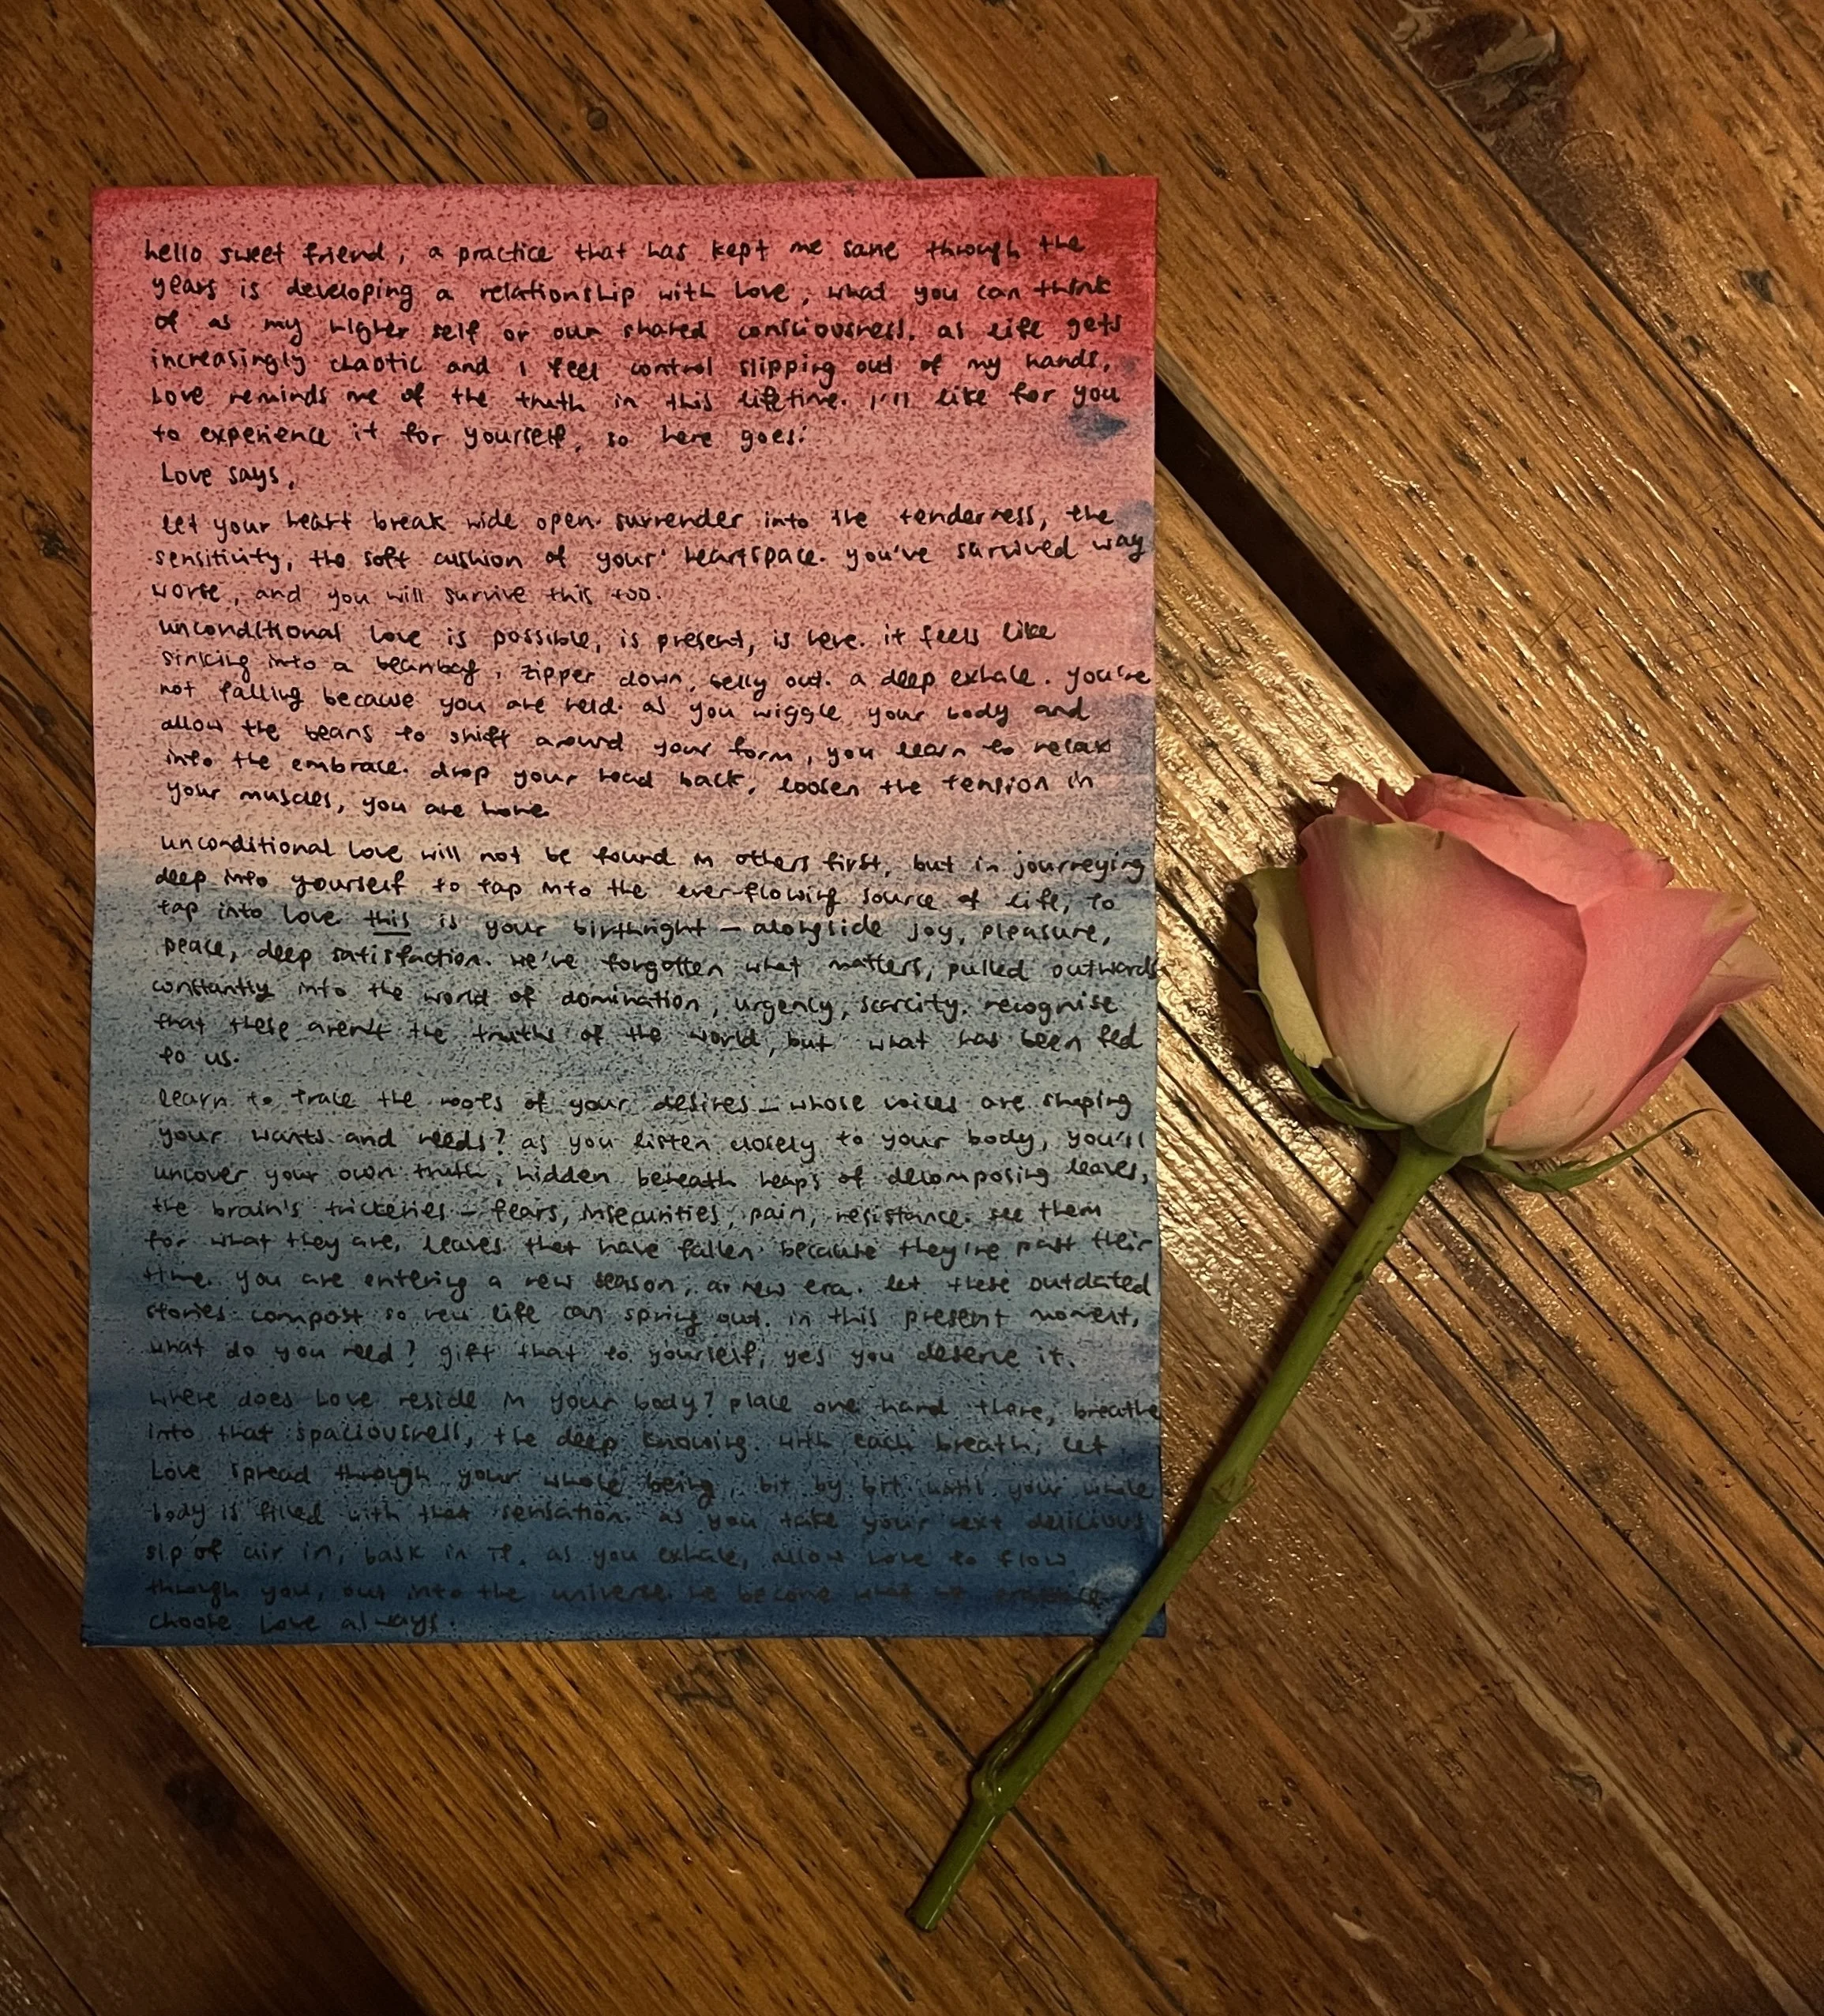 hello sweet friend, a practice that has kept me sane through the
years is developing a relationship with Love, what you can think
of as my higher self or our shared consciousness. as life gets
increasingly chaotic and I feel control slipping out of my hands,
Love reminds me of the truth in this lifetime. I'll like for you
to experience it for yourself, so here goes:
Love says,
let your heart break wide open. surrender into the tenderness, the
sensitivity, the soft cushion of your heartspace. you've survived way
worse, and you will survive this too.
unconditional love is possible, is present, is here. it feels like
sinking into a beanbag, zipper down, belly out. a deep exhale. you're
not falling because you are held. as you wiggle your body and
allow the beans to shift around your form, you learn to relax
into the embrace. drop your head back, loosen the tension in
your muscles, you are home.
unconditional love will not be found in others first, but in journeying
deep into yourself to tap into the ever-flowing source of life, to
tap into love. this is your birthright – alongside joy, pleasure,
peace, deep satisfaction. we've forgotten what matters, pulled outwards
constantly into the world of domination, urgency, scarcity. recognise
that these aren't the truths of the world, but what has been fed
to us.
learn to trace the roots of your desires – whose voices are shaping
your wants and needs? as you listen closely to your body, you'll
uncover your own truth, hidden beneath heaps of decomposing leaves,
the brain's trickeries – fears, insecurities, pain, resistance. see them
for what they are, leaves that have fallen because they're past their
time. you are entering a new season, a new era. let these outdated
stories compost so new life can spring out. in this present moment,
what do you need? gift that to yourself, yes you deserve it.
where does Love reside in your body? place one hand there, breathe
into that spaciousness, the deep knowing. with each breath, let
Love spread through your whole being, bit by bit until your whole
body is filled with that sensation. as you take your next delicious
sip of air in, bask in it. as you exhale, allow love to flow
through you, out into the universe. we become what we
choose Love always.